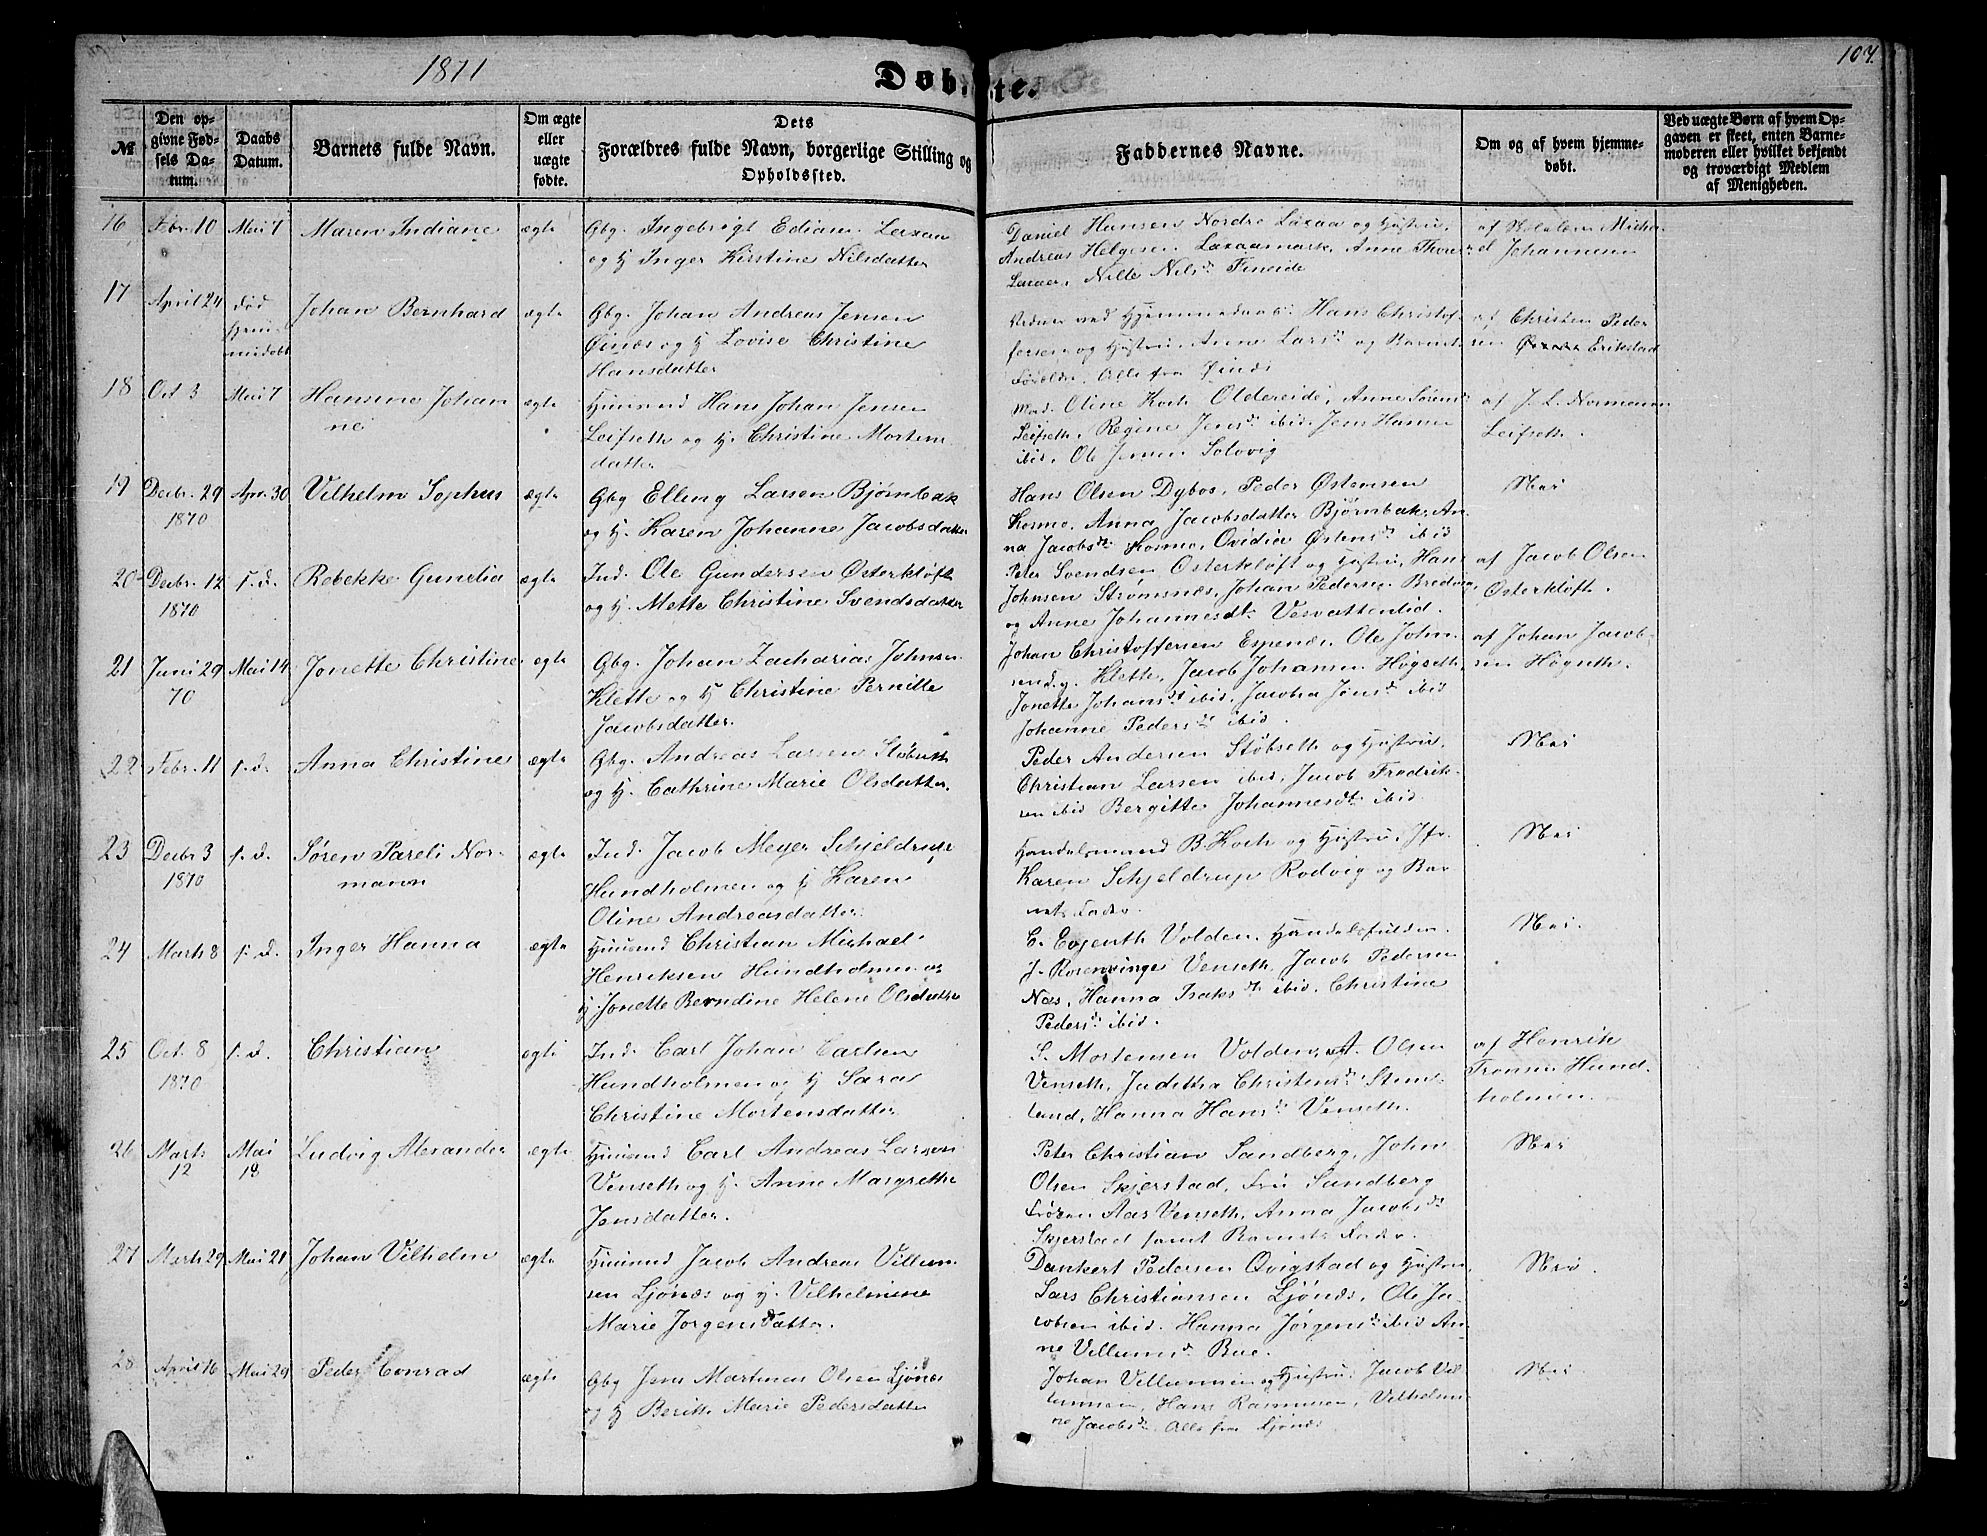 1871
Døbte.
107.
№
Den opgivne Fødsels Datum.
Daabs Datum.
Barnets fulde Navn.
Om ægte eller uægte fødte.
Dets Forældres fulde Navn, borgerlige Stilling og Opholdssted.
Faddernes Navne.
Om og af hvem hjemmedøbt.
Ved uægte Børn af hvem Opgaven er skeet, enten Barnemoderen eller hvilket bekjendt og troværdigt Medlem af Menigheden.
16 Febr. 10 Mai 7 Maren Indiane ægte
Gbg. Ingebrigt Edian
og H Inger Kirstine Nilsdatter
Daniel Hansen Nordre Laxaa og Hustru,
Andreas Helgesen Laxaamark, Anne
Nille Nilsd. Fineide
Johannesen
17 April 24 død Johan Bernhard ægte
Gbg. Johan Andreas Jensen
Øines og H Lovise Christine
Hansdatter
ved Hjemmedaab: Hans Christof-
fersen og Hustru, Anne Larsd. og Barnets
Forældre. Alle fra Øines
af Christen Peder
sen Erikstad
18 Oct 3 Mai 7 Hansine Johan
ne
ægte
Huusmd Hans Johan Jensen
Leifseth og H. Christine Mortens
datter
Mad. Oline Koch Oldereide, Anne Sørensd.
Leifseth, Regine Jensd. ibid, Jens Hansen
ibid, Ole Jensen Solovig
af J. L. Normann
Leifseth.
19 Decbr. 29 Apr. 30 Vilhelm Sophus ægte
1870
Gbg Elling Larsen Bjørnbak
og H. Karen Johanne Jacobsdatter
Hans Olsen Dybos, Peder Østensen
Kosmo, Anna Jacobsdatter Bjørnbak, An-
na Jacobsdr Kosmo, Ovidia Østensd. ibid
Nei
20 Decbr. 12 s. d. Rebekke Gunelia ægte
1870
Ind. Ole Gundersen Østerkløft
og H. Mette Christine Svendsdatter
Peter Svendsen Østerkløft og Hustru, Hans
Johnsen Strømsnæs, Johan Pedersen Bredvig
og Anne Johannesdr. Vesvattenlid.
af Jacob Olsen
Osterkløft.
21 Juni 29 Mai 14 Jonette Christine ægte
70
Gbg. Johan Zacharias Johnsen
Klette og H Christine Pernille
Jacobsdatter.
Johan Christoffersen Espenæs, Ole John
sen d.y. Klette, Jacob Johansen Høgseth,
Jonette Johansdr ibid, Jacobea Jonsd. ibid
Johanne Pedersd ibid.
af Johan Jacob-
sen Høgseth.
22 Febr. 11 s. d. Anna Christine ægte
Gbg. Andreas Larsen Støbseth
og H. Cathrine Marie Olsdatter.
Peder Andersen Støbseth og Hustru,
Christian Larsen ibid, Jacob Fredrik-
sen ibid Bergitte Johannesdr. ibid.
Nei
23 Decbr 3 s. d. Søren Pareli Nor-
1870 mann
ægte
Ind. Jacob Meyer Schjeldrup
Hundholmen og H Karen
Oline Andreasdatter.
Handelsmand B. Koch og Hustru, Jfr.
Karen Schjeldrup Rodvig og Bar
nets Fader.
Nei
24 Marts 8 s. d. Inger Hanna ægte
Huusmd Christian Michael
Henriksen Hundholmen og
H. Jonette Berndine Helene Olsdatter
E. Evjenth Volden, Handelsfuldm.
J. Rosenvinge Venseth, Jacob Pedersen
Næs, Hanna Isaksd. ibid. Christine
Pedersd. ibid.
Nei.
25 Oct. 8 s. d. Christian ægte
1870
Ind. Carl Johan Carlsen
Hundholmen og H Sara
Christine Mortensdatter
S. Mortensen Volden, A. Olsen
Venseth, Juditha Christensd.
land, Hanna Hansd. Venseth.
af Henrik
Tronsen Hund
holmen.
26 Marts Mai Ludvig Alexander ægte
12 18
Huusmd Carl Andreas Larsen
Venseth og H. Anne Margrethe
Jensdatter.
Peter Christian Sandberg, John
Olsen Skjerstad, Fru Sandberg
Frøken Aas Venseth, Anna Jacobsdr
Skjerstad samt Barnets Fader.
Nei
27 Marts 29 Mai 21 Johan Vilhelm ægte
Huusmd Jacob Andreas Villum
sen Ljønæs og H. Vilhelmine
Marie Jorgensdatter.
Dankert Pedersen Qvigstad og Hustru,
Lars Christiansen Ljønæs, Ole Ja-
cobsen ibid. Hanna Jørgensd. ibid An-
ne Villumsd. Bae.
Nei.
28 April 16 Mai 29 Peder Conrad ægte
Gbg Jens Martinus Olsen Ljønæs
og H Berith Marie Pedersdatter
Johan Villumsen og Hustru, Jacob Vil-
lumsen, Hans Rasmussen, Vilhelmi-
ne Jacobsd. Alle fra Ljønæs
Nei